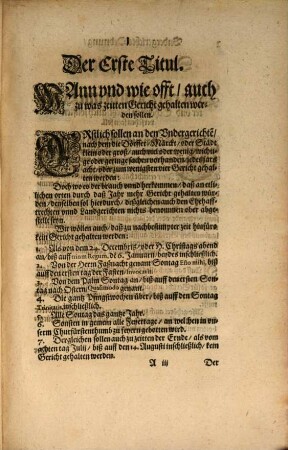 Der Erste Titul.
WAnn vnd wie offt/ auch
zu was zeiten Gericht gehalten wer-
den sollen.
ERstlich sollen an den Vndergerichtē/
nach dem die Dörffer/ Märckt/ oder Städt
klein oder groß/ auch viel oder wenig/ wichti-
ge oder geringe sachen vorhanden/ zehen/biß in
acht/ oder zum wenigsten vier Gericht gehal-
ten werden:
Doch wo es der brauch vnnd herkommen/ daß an etli-
chen orten durch daß Jahr mehr Gericht gehalten wür-
den/ demselben sol hierdurch/ deßgleichen auch den Ehehaff-
trechten vnnd Landgerichten nichts benommen oder abge-
stelt seyn.
Wir wöllen auch/ daß zu nachbestimpter zeit hinfür
kein Gericht gehalten werden:
1. Als von dem 24. Decembris/ oder H. Christtags abend
an/ biß auff trium Regum, de 6. Januarij, beydes inschließlich.
2. Von der Herrn Faßnacht genant Sontag Esto mihi, biß
auff den ersten tag der Fasten/ Inuocauit.
3. Von dem Palm Sontag an/ biß auff den ersten Son-
tag nach Ostern/ Quasimodo genant.
4. Die gantz Pfingstwochen über/ biß auff den Sontag
Trinitatis, inschließlich.
5. Alle Sontag das gantze Jahr.
6. Sonsten in gemein alle Feyertage/ an welchen in vn-
serm Churfürstenthumb zu feyern gebotten wird.
7. Dergleichen sollen auch zu zeiten der Ernde/ als vom
achten tag Julij/ biß auff den 14. Augusti inschließlich/ kein
Gericht gehalten werden.
A iij Der